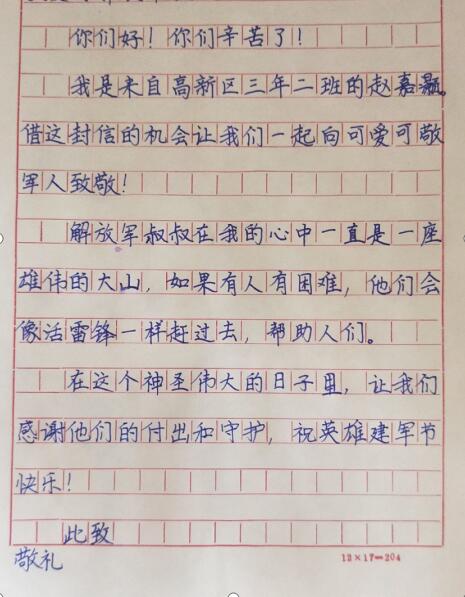 你们好！你们辛苦了！
我是来自高新区三年二班的赵嘉颢。
借这封信的机会让我们一起向可爱可敬
军人致敬！
解放军叔叔在我的心中一直是一座
雄伟的大山，如果有人有困难，他们会
像活雷锋一样赶过去，帮助人们。
在这个神圣伟大的日子里，让我们
感谢他们的付出和守护，祝英雄建军节
快乐！
此致
敬礼
12×17=204